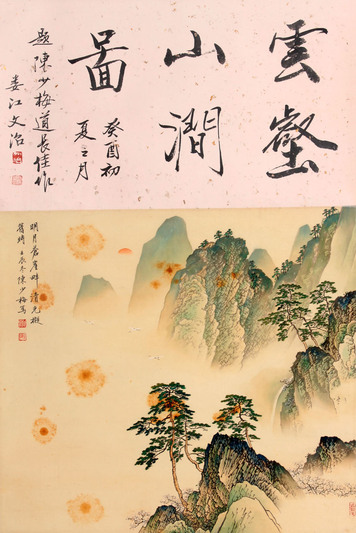 雲壑
山澗
圖
癸酉初
夏之月
題陳少梅道長佳作
婁江文治
明月蒼崖畔清光
壬辰冬陳少梅寫